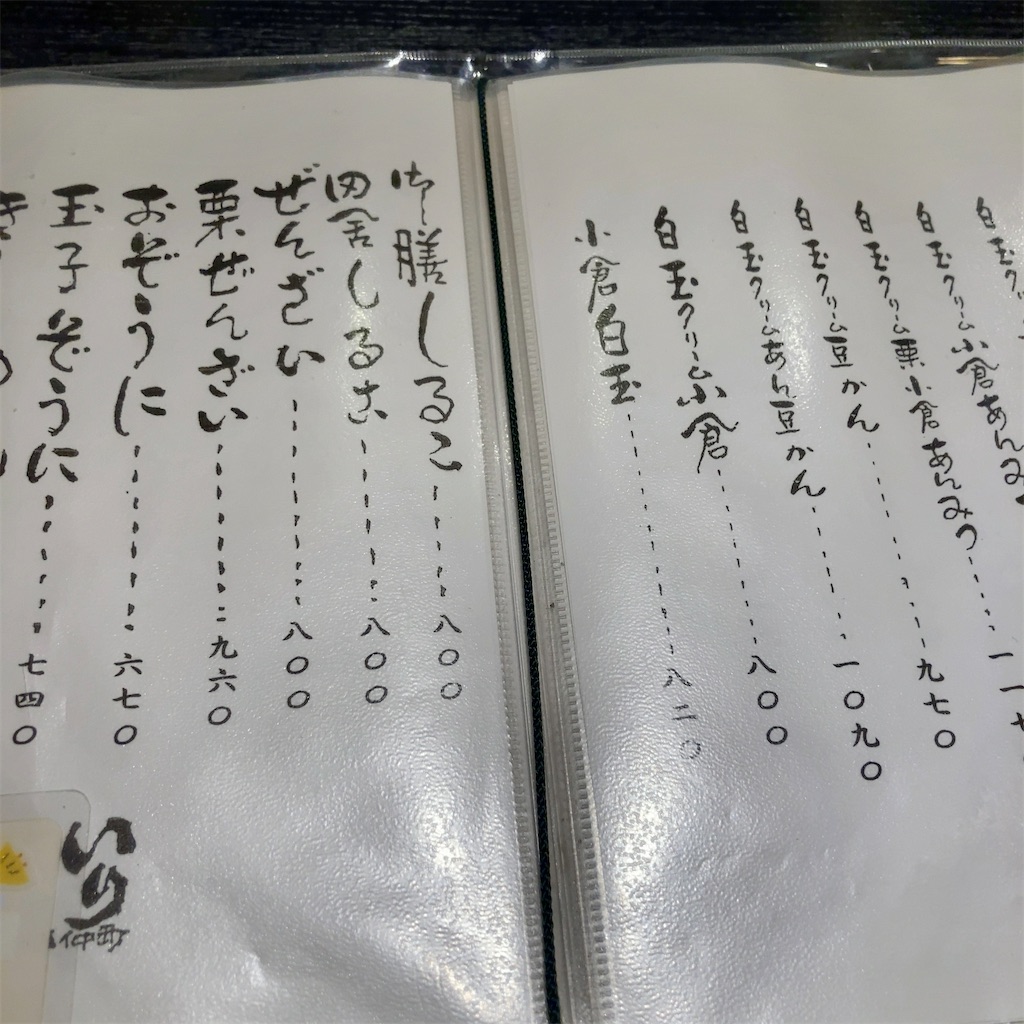 白玉ク
白玉クリーム小倉あんみ
白玉クリーム栗小倉あんみつ……一一七
白玉クリーム豆かん……九七〇
白玉クリームあん豆かん……一〇九〇
白玉クリーム小倉……八〇〇
小倉白玉……八二〇
御膳しるこ……八〇〇
田舎しるこ……八〇〇
ぜんざい……八〇〇
栗ぜんざい……九六〇
おぞうに……六七〇
玉子ぞうに……七四〇
いり
仲町